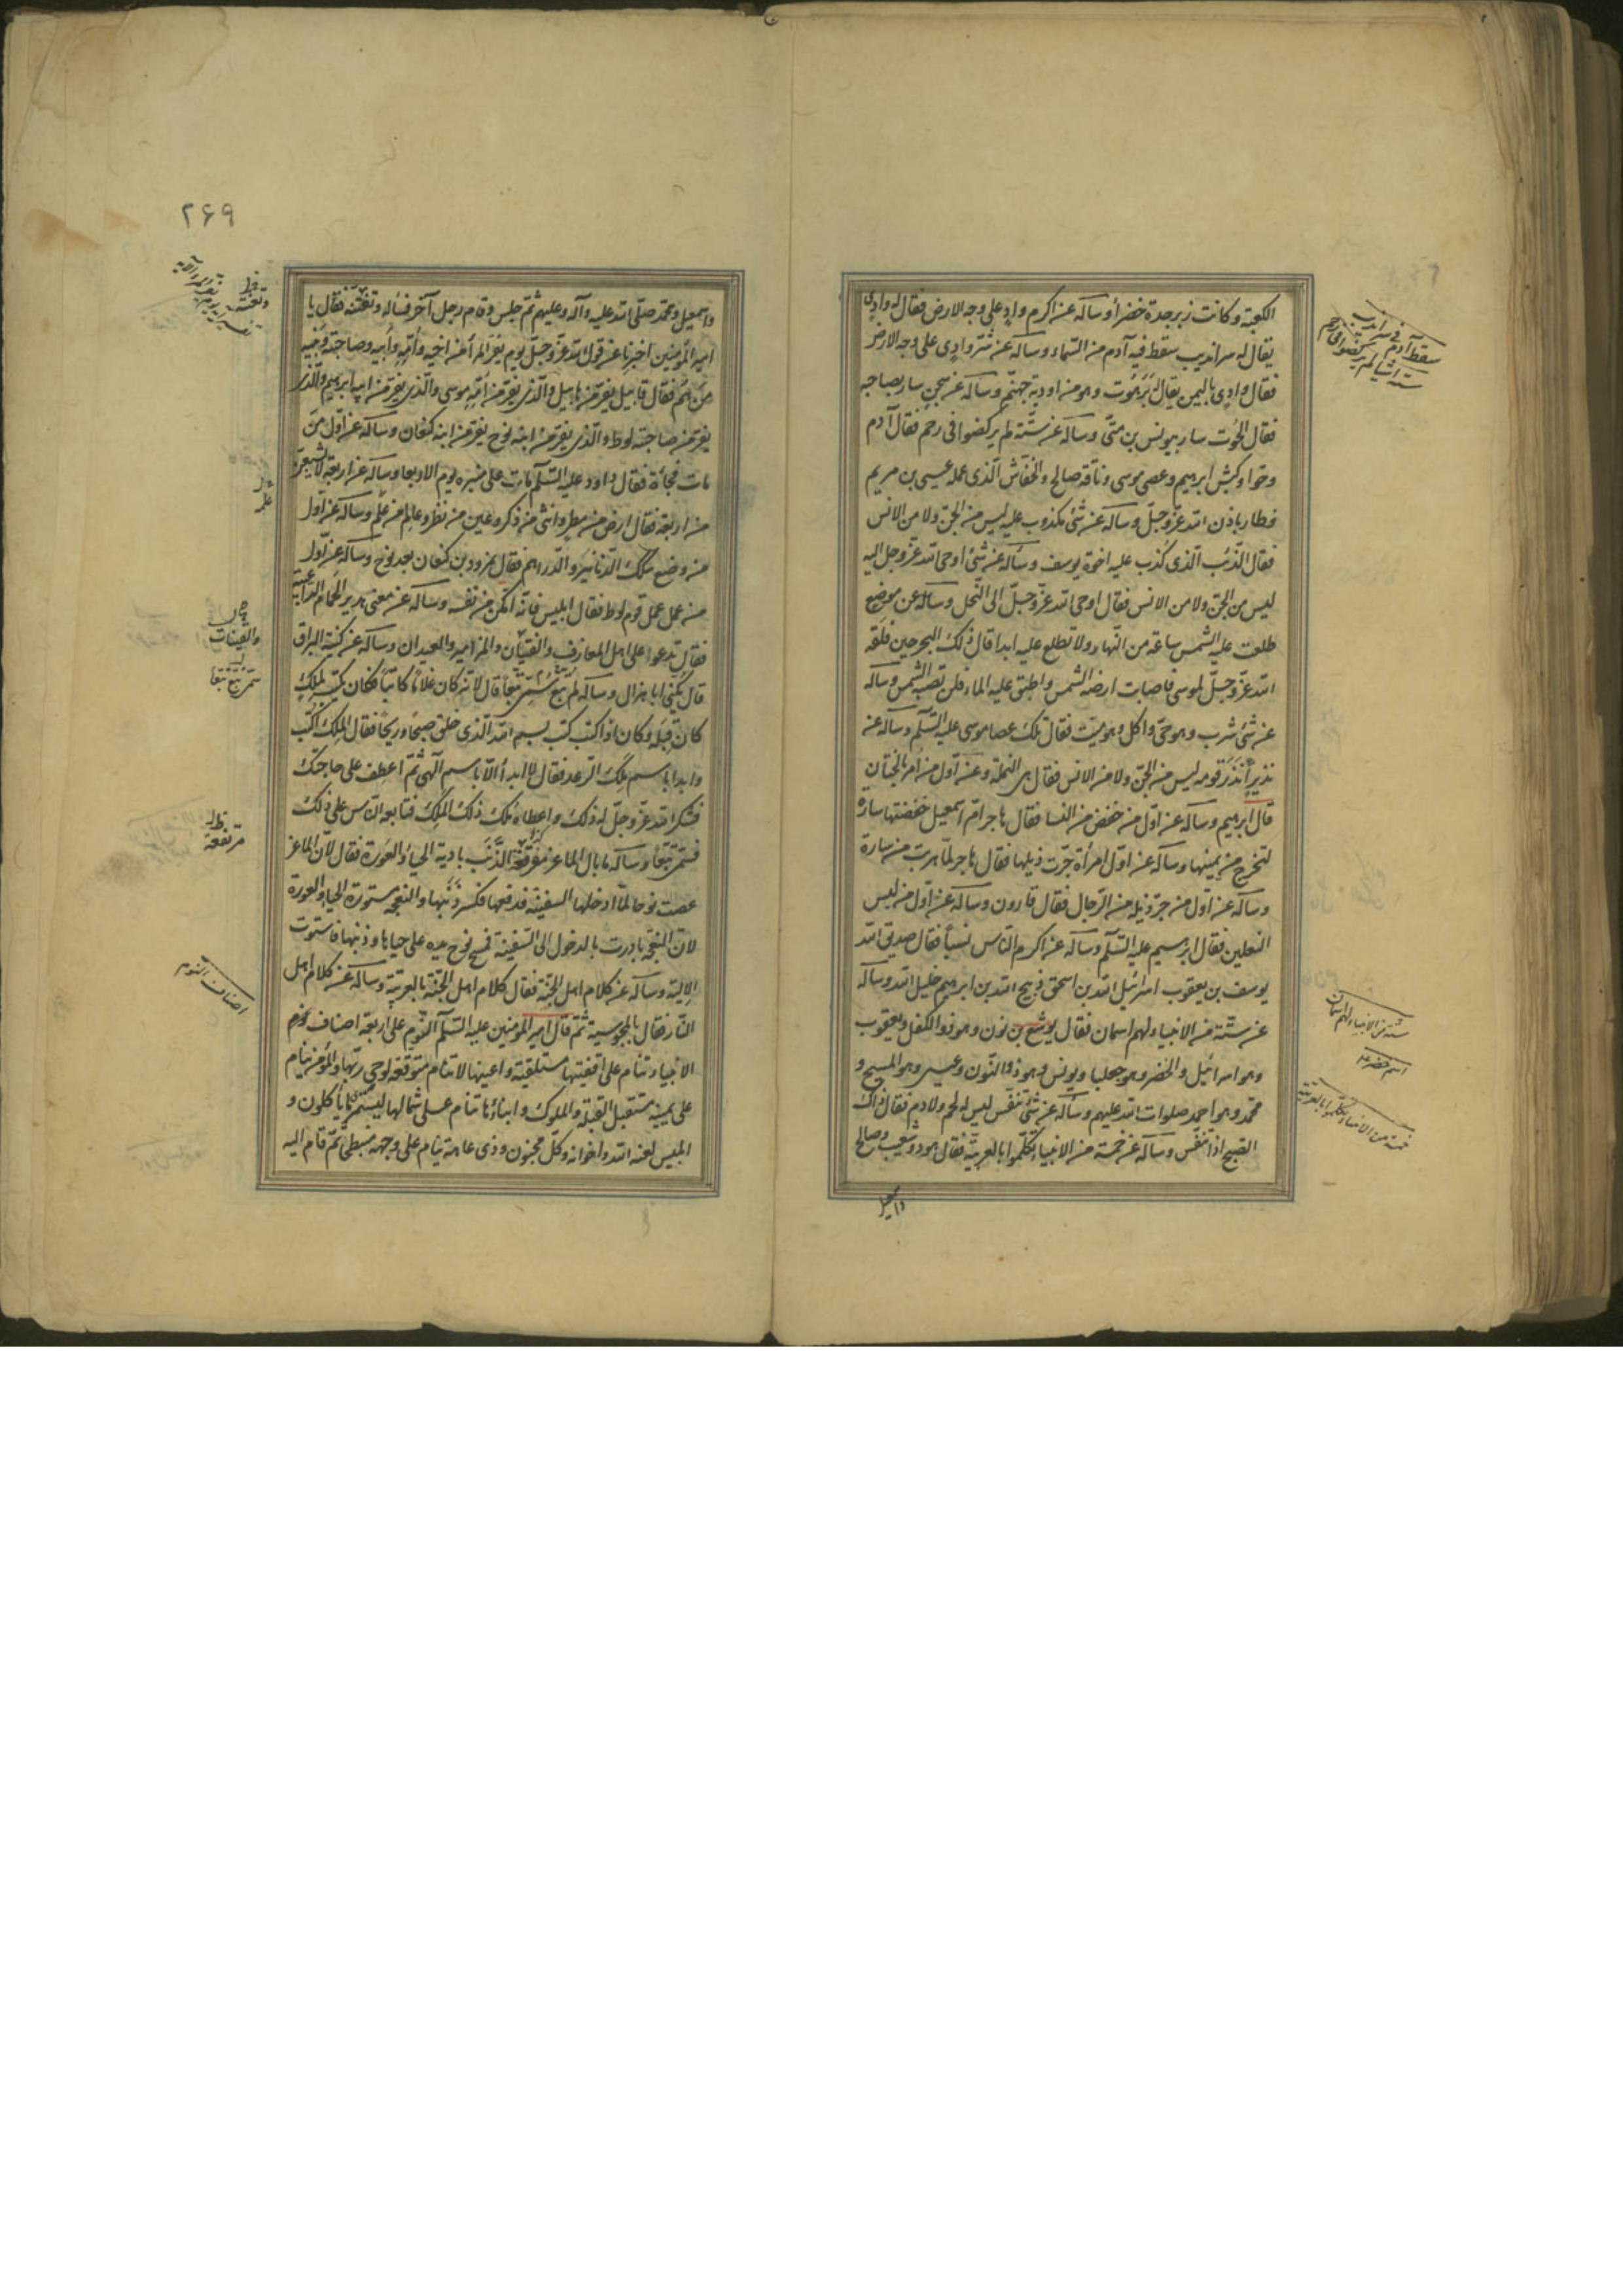 الكعبة وكانت زبرجدة خضرأ وسأله عن اكرم واد على وجه الارض فقال له وادى
يقال له سرانديب سقط فيه آدم من السماء وسأله عن شر وادى على وجه الارض
فقال وادى باليمن يقال له بَرَهُوت وهو من اودية جهنّم وسأله عن سجن سار بصاحبه
فقال الحوت سار بيونس بن متّى وسأله عن ستّة لم يركضوا فى رحم فقال آدم
وحوا وكبش ابرهيم وعصى موسى وناقة صالح والخفاش الّذى عمله عيسى بن مريم
فطار باذن الله عزّ وجلّ وسأله عن شئ مكذوب عليه ليس من الجنّ ولا من الانس
فقال الذّئب الّذى كذب عليه اخوة يوسف وسأله عن شئ اوحى الله عزّ وجل اليه
ليس من الجنّ ولا من الانس فقال اوحى الله عزّ وجلّ الى النّحل وسأله عن موضع
طلعت عليه الشمس ساعة من النّهار ولا تطلع عليه ابدا قال ذلك البحر حين فلقه
الله عزّ وجلّ لموسى فاصابت ارضه الشمس واطبق عليه الماء فلن تصيبه الشمس وسأله
عن شئ شرب وهو حىّ واكل وهو ميت فقال تلك عصا موسى عليه السّلم وسأله عن
نذير أَنذَرَ قومه ليس من الجنّ ولا من الانس فقال هى النملة وعن اوّل من امر بالختان
قال ابرهيم وسأله عن اوّل من خفض من النسا فقال هاجر امّ اسمعيل خفضتها سارة
لتخرج من يمينها وسأله عن اوّل امرأة جرّت ذيلها فقال هاجر لمّا هربت من سارة
وسأله عن اوّل من جرّ ذيله من الرّجال فقال قارون وسأله عن اوّل من لبس
النعلين فقال ابرهيم عليه السّلم وسأله عن اكرم النّاس نسباً فقال صديق الله
يوسف بن يعقوب اسرائيل الله بن اسحق ذبيح الله بن ابرهيم خليل الله وسأله
عن ستّة من الانبياء لهم اسمان فقال يوشع بن نون وهو ذو الكفل ويعقوب
وهو اسرائيل والخضر وهو جعليا ويونس وهو ذو النّون وعيسى وهو المسيح و
محمّد وهو احمد صلوات الله عليهم وسأله عن شئ تنفّس ليس له لحم ولا دم فقال ذاك
الصّبح اذا تنفّس وسأله عن خمسة من الانبياء تكلّموا بالعربيّة فقال هود وشعيب وصالح
واسمعيل
سقط آدم فى سرانديب
ستة اشيا لم يركضوا فى رحم
ستّة من الانبياء لهم اسمان
اسم خضر
خمسة من الانبياء تكلموا بالعربية
۲۶۹
واسمعيل ومحمّد صلّى الله عليه وآله وعليهم ثمّ جلس وقام رجل آخر فسأله وتعنّته فقال يا
امير المؤمنين اخبرنا عن قول الله عزّ وجلّ يوم يفرّ المرأ من اخيه وأُمّه وأبيه وصاحبته وبنيه
مَن هُم فقال قابيل يفرّ من هابيل والّذى يفرّ من أمّه موسى والّذى يفرّ من ابيه ابرهيم والّذى
يفرّ من صاحبته لوط والّذى يفرّ من ابنه نوح يفرّ من ابنه كنعان وسأله عن اوّل من
مات فجأة فقال داود عليه السّلم مات على منبره يوم الاربعا وسأله عن اربعة لا يشبعن
من اربعة فقال ارض من مطر وانثى من ذكر وعين من نظر وعالم من علم وسأله عن اوّل
من وضع سكك الدّنانير والدّراهم فقال نمرود بن كنعان بعد نوح وسأله عن اوّل
من عمل عمل قوم لوط فقال ابليس فانّه امكن من نفسه وسأله عن معنى هدير الحمام الراعبيّة
فقال تدعوا على اهل المعازف والقيان والمزامير والعيدان وسأله عن كنية البراق
قال يكنى ابا هزال وسأله لم سمّى تبّع تبّعاً قال لانّه كان غلاماً كاتباً فكان يكتب لملك
كان قبله وكان اذا كتب كتب بسم الله الّذى خلق صبحاً وريحاً فقال الملك اكتب
وابدا باسم ملك الرّعد فقال لا ابدأ الّا باسم آلهى ثمّ اعطف على حاجتك
فشكر الله عزّ وجلّ له ذلك واعطاه ملك ذلك الملك فتابعه النّاس على ذلك
فسمّى تبّعاً وسأله ما بال الماعز مفرقعة الذَّنَب بادية الحياء والعورة فقال لانّ الماعز
عصت نوحا لمّا ادخلها السفينة فدفعها فكسر ذَنَبها والنعجة مستورة الحياء والعورة
لانّ النعجة بادرت بالدخول الى السّفينة فمسح نوح يده على حياها وذنبها فاستوت
الالية وسأله عن كلام اهل الجنّة فقال كلام اهل الجنّة بالعربيّة وسأله عن كلام اهل
النّار فقال بالمجوسية ثمّ قال امير المؤمنين عليه السّلم النّوم على اربعة اصناف
الانبياء تنام على اقفيتها مستلقية واعينها لا تنام متوقعة لوحى ربّها والمؤمن ينام
على يمينه مستقبل القبلة والملوك وابناؤها تنام على شمالها ليستمرؤا ما يأكلون و
ابليس لعنه الله واخوانه وكلّ مجنون وذى عاهة ينام على وجهه منبطح ثمّ قام اليه
والقينات
اصناف النوم